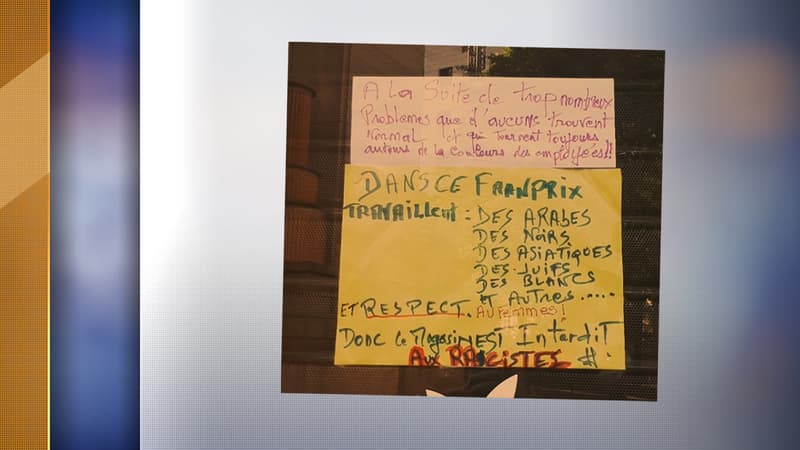 A La Suite de trop nombreux
Problemes que d'aucuns trouvent
Normal et qui tournent toujours
autours de la Couleurs des employées!!
DANS CE FRANPRIX
TRAVAILLent : DES ARABES
DES NOIRS
DES ASIATIQUES
DES JUIFS
DES BLANCS
ET AUTRES.....
ET RESPECT. AU Femmes!
Donc le Magasin EST InterdiT
Aux RACISTES #.